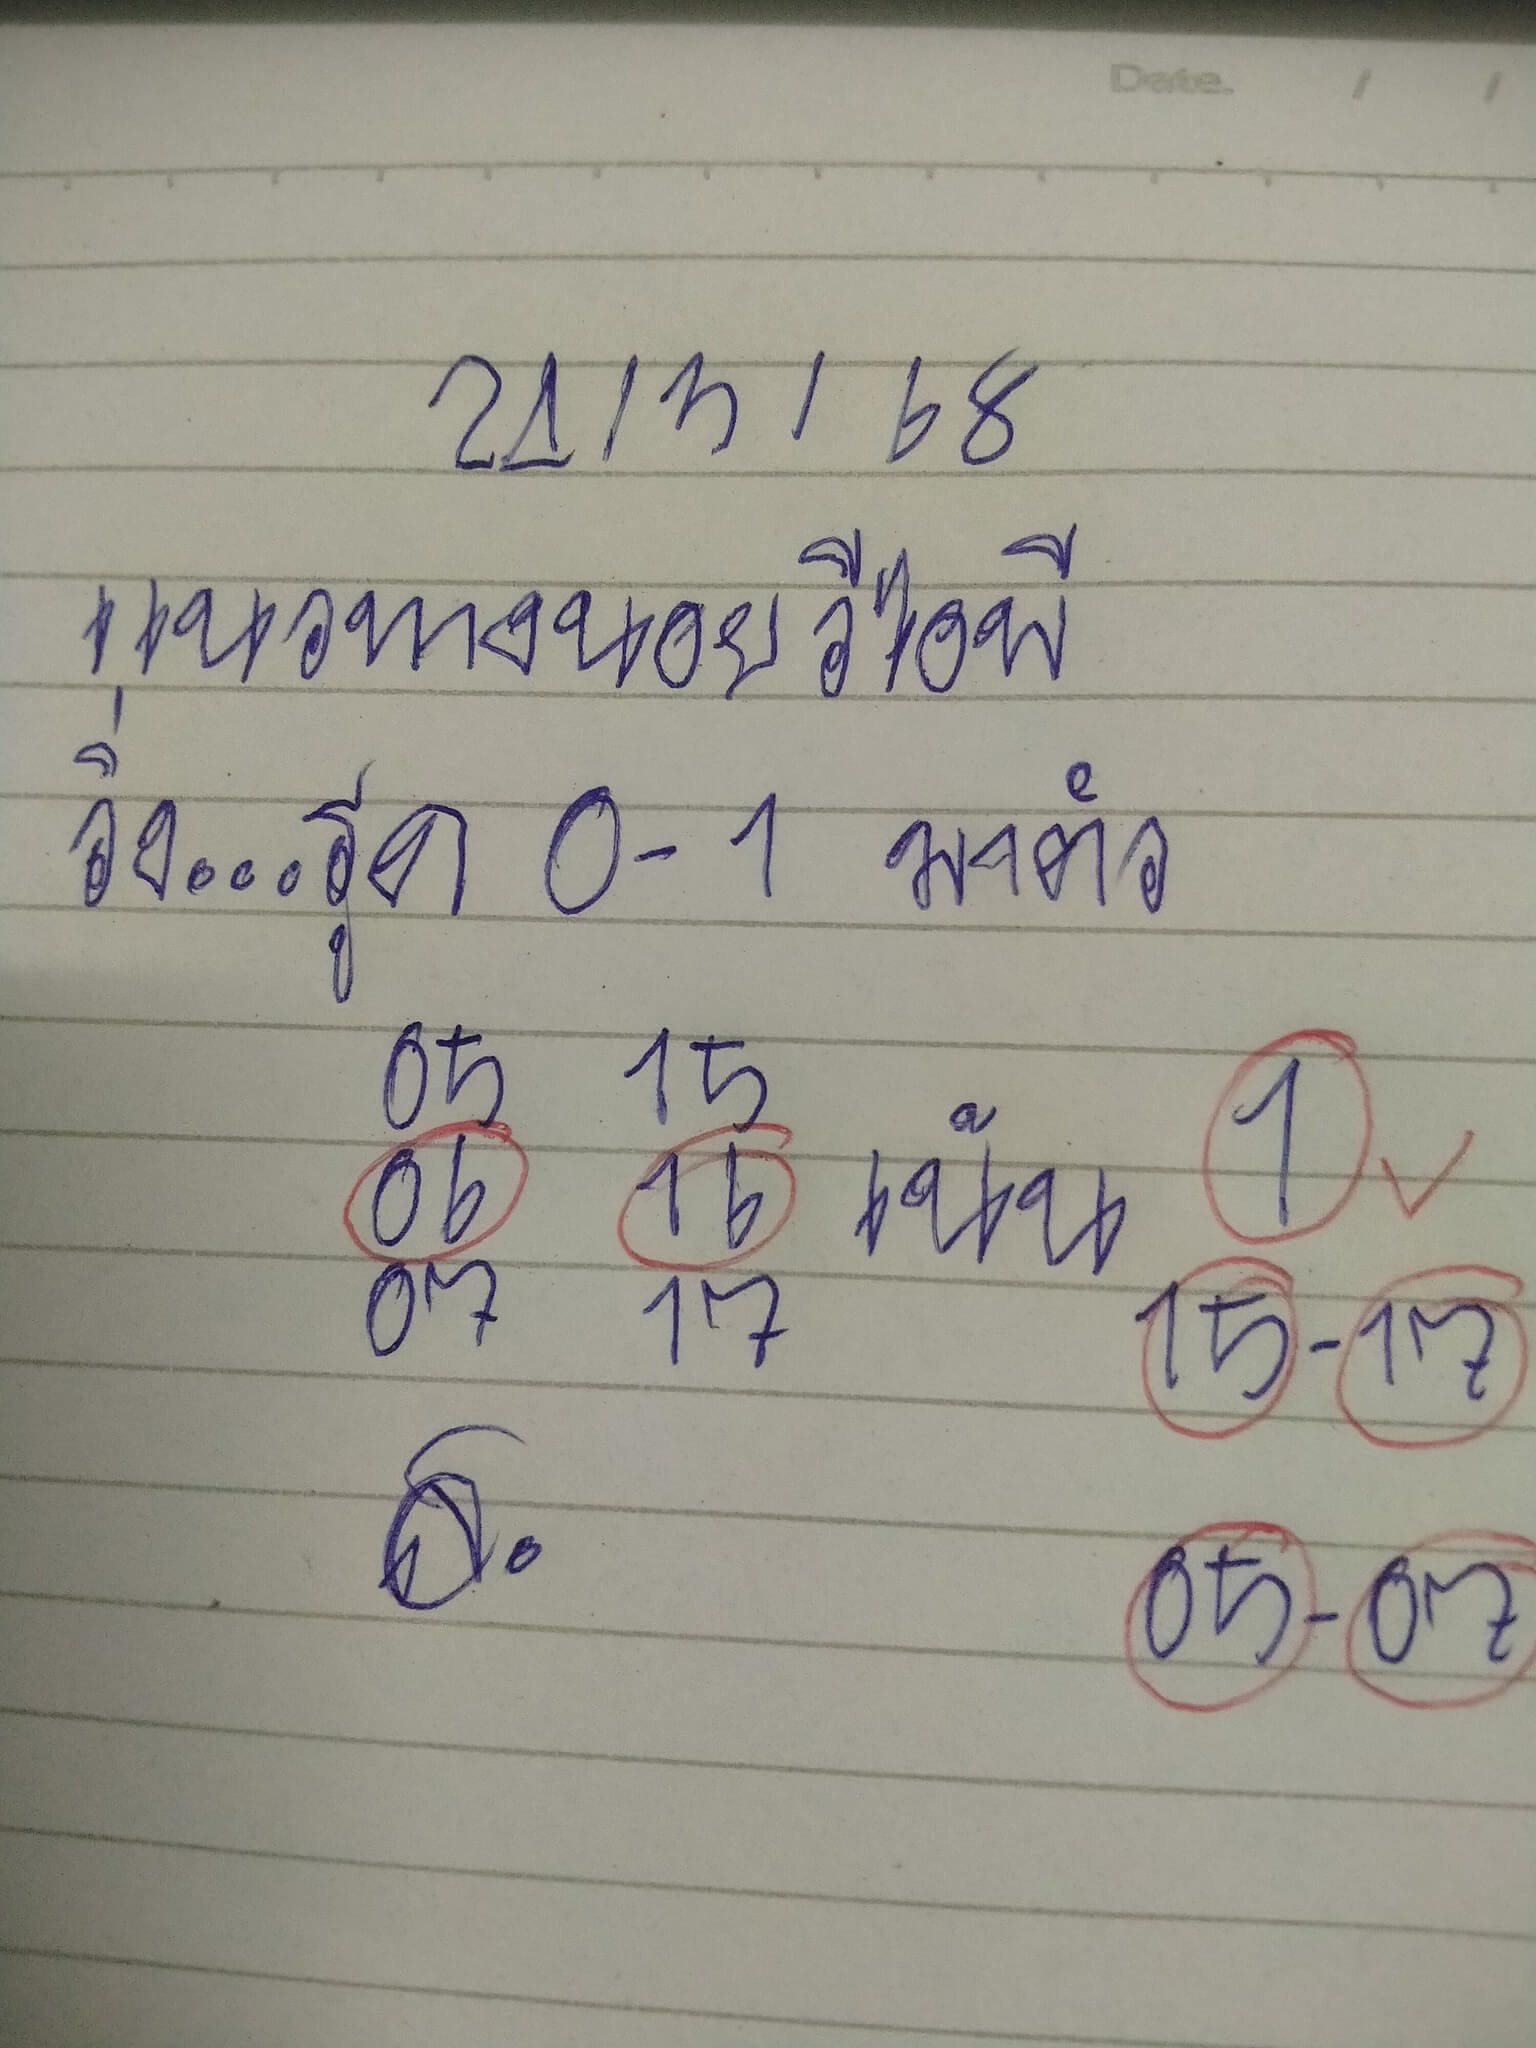 Date. / /
21/5/68
แนวทางนอยวีไอพี
วิ่ง...รูด 0-1 มาตัว
05 15
06 16 เน้น 1
07 17 15-17
05-07